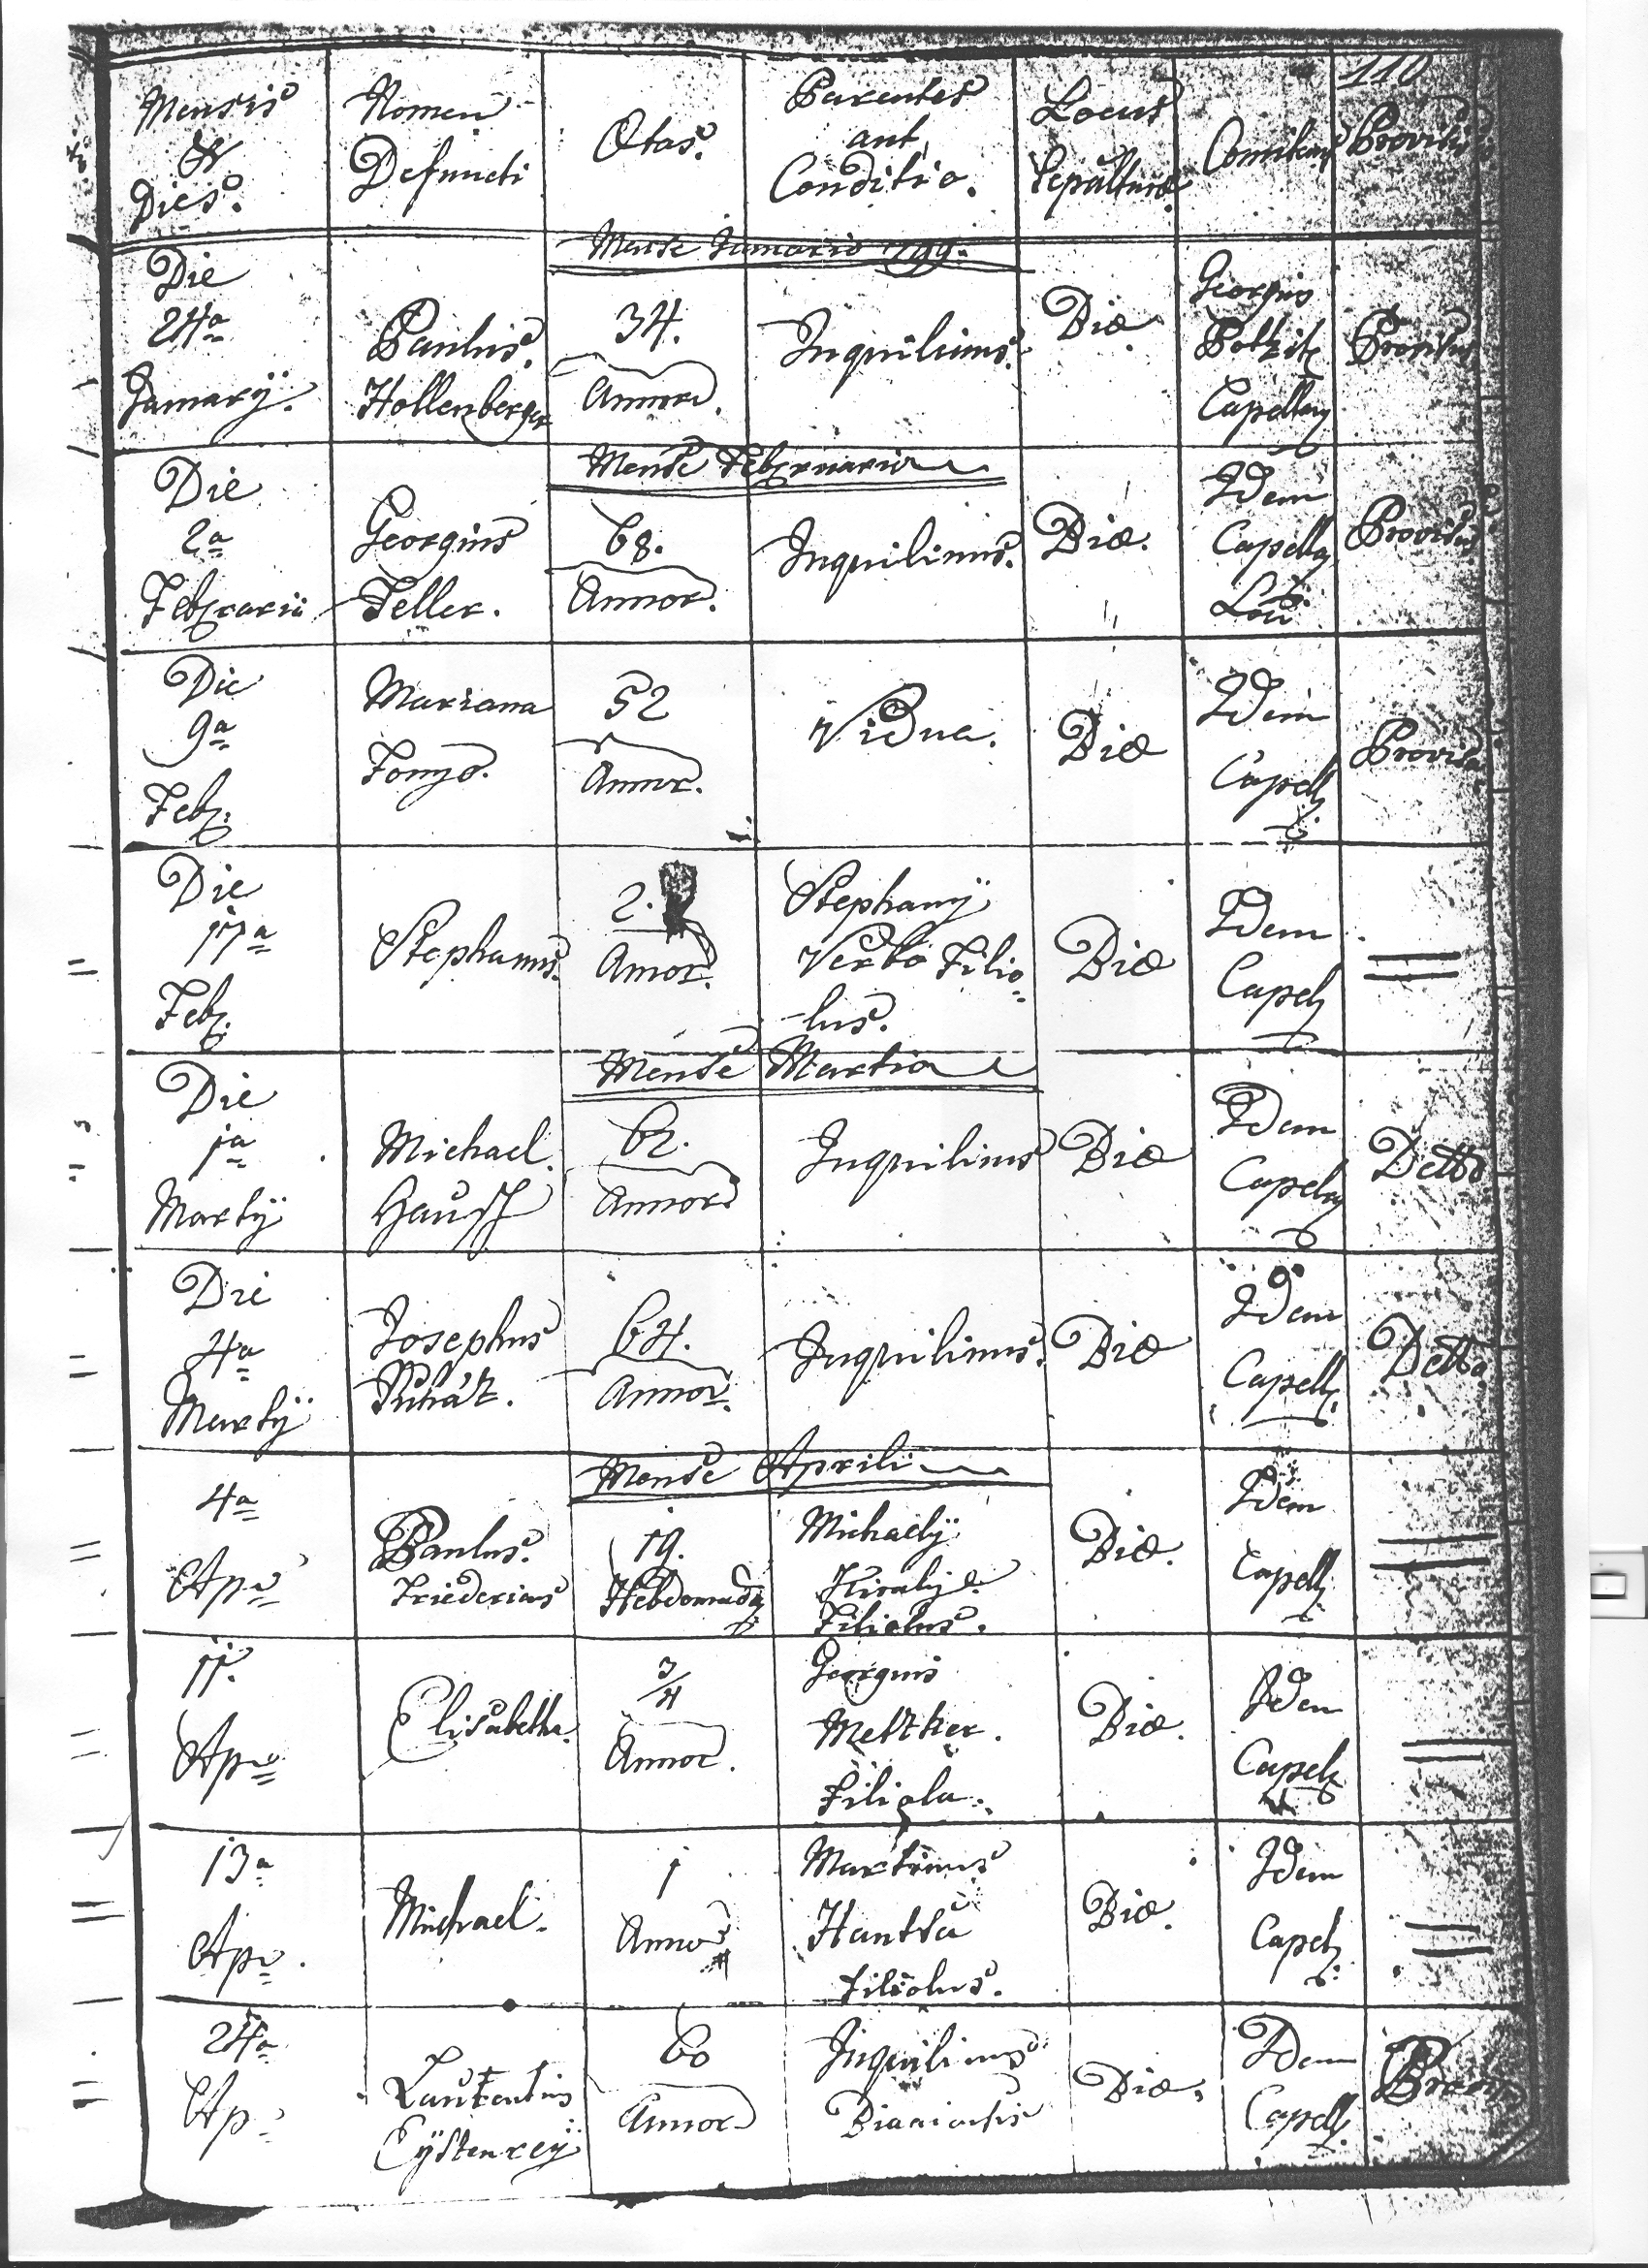 110
Mensis
&
Dies.
Nomen
Defuncti
Ætas.
Parentes
aut
Conditio.
Locus
Sepulturæ
Provisus
Mense Januario 799.
Die
24a
Januarÿ.
Paulus.
Hollenberger
34.
Annor.
Inquilinus.
Biæ.
Georgius
Capellan
Provisus
Mense Februario
Die
2a
Februarii
Georgius
Feller.
68.
Annor.
Inquilinus.
Biæ.
Idem
Capellan
Provisus
Die
9a
Feb.
Mariana
Fonyo.
52
Annor.
Vidua.
Biæ
Idem
Capell
Provisa
Die
17a
Feb.
Stephanus.
2.
Annor.
Stephany
Verbo Filio-
-lus.
Biæ
Idem
Capel
Mense Martio
Die
1a
Martÿ
Michael.
62.
Annor
Inquilinus
Biæ
Idem
Capelan
Detto
Die
4a
Martÿ
Josephus
64.
Annor.
Inquilinus.
Biæ
Idem
Capell.
Detto
Mense Aprili
4a
Apr
Paulus.
Friedericus
19.
Hebdomad
Michaelÿ
Kiralÿ.
Filiolus.
Biæ.
Idem
Capell
11.
Apr
Elisabetha.
3/4
Annor.
Georgius
Meltzer.
Filiola.
Biæ.
Idem
Capel
13a
Apr.
Michael.
1
Anno
Martinus
Filiolus.
Biæ.
Idem
Capel
24a
Apr
Laurentius
60
Annor
Inquilinus
Biæ.
Idem
Capell